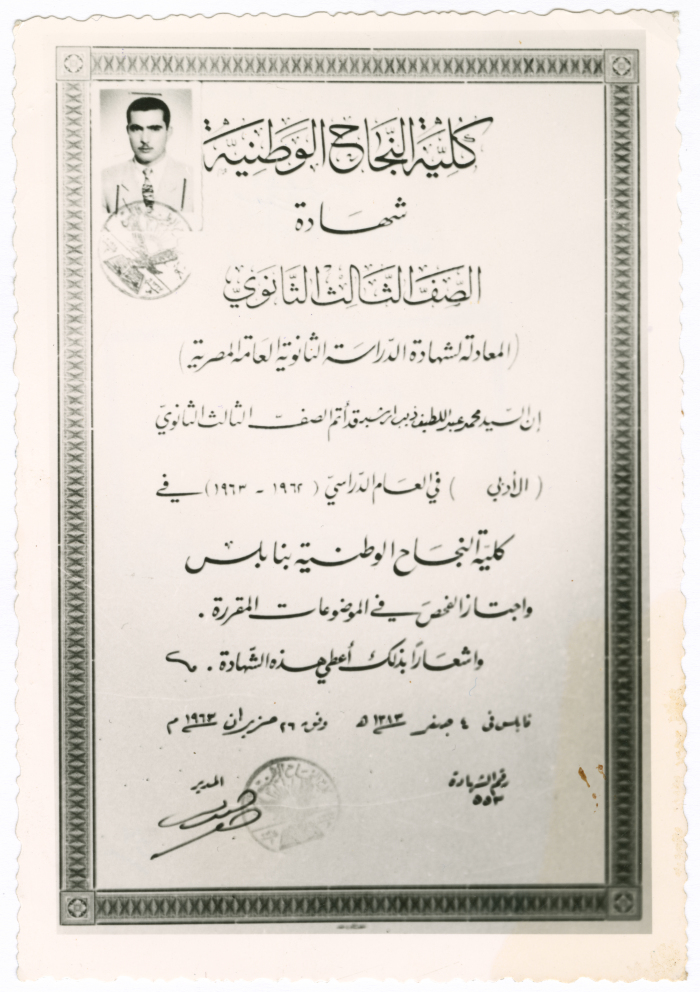 كلية النجاح الوطنية
شهادة
الصف الثالث الثانوي
(المعادلة لشهادة الدراسة الثانوية العامة المصرية)
إن السيد محمد عبد اللطيف قد أتم الصف الثالث الثانوي
(الأدبي) في العام الدراسي (١٩٦٢ - ١٩٦٣) في
كلية النجاح الوطنية بنابلس
واجتاز الفحص في الموضوعات المقررة .
واشعاراً بذلك أعطي هذه الشهادة .
نابلس في ٤ صفر ١٣٨٣ هـ وفق ٢٦ حزيران ١٩٦٣ م
رقم الشهادة
٥٥٣
المدير